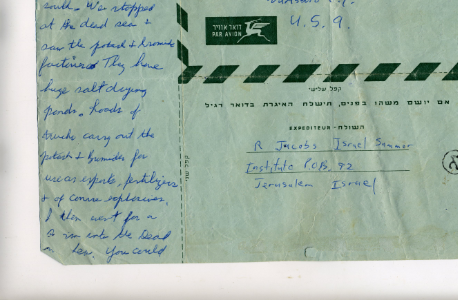 south. We stopped
at the dead sea &
saw the potash & bromide
factories They have
huge salt drying
ponds. loads of
trucks carry out the
potash & bromides for
use as exports, fertilizers
& of course explosives.
I then went for a
swim into the Dead
Sea. You could
U.S.A.
דואר אוויר
PAR AVION
קפל שלישי
אם יושם משהו בפנים, תישלח האיגרת בדואר רגיל
השולח - EXPEDITEUR
R Jacobs Israel Summer
Institute P.O.B. 92
Jerusalem Israel
קפל שני